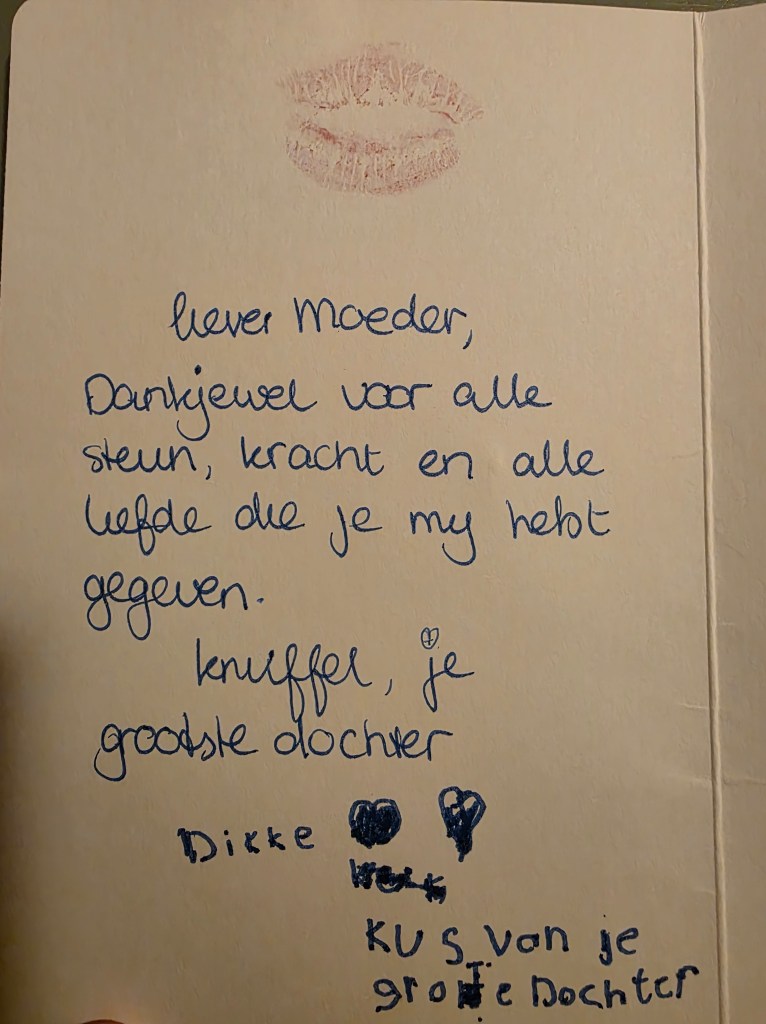 liever Moeder,
Dankjewel voor alle
steun, kracht en alle
liefde die je my hebt
gegeven.
knuffel, je
grootste dochter
Dikke
KUS van je
grote Dochter